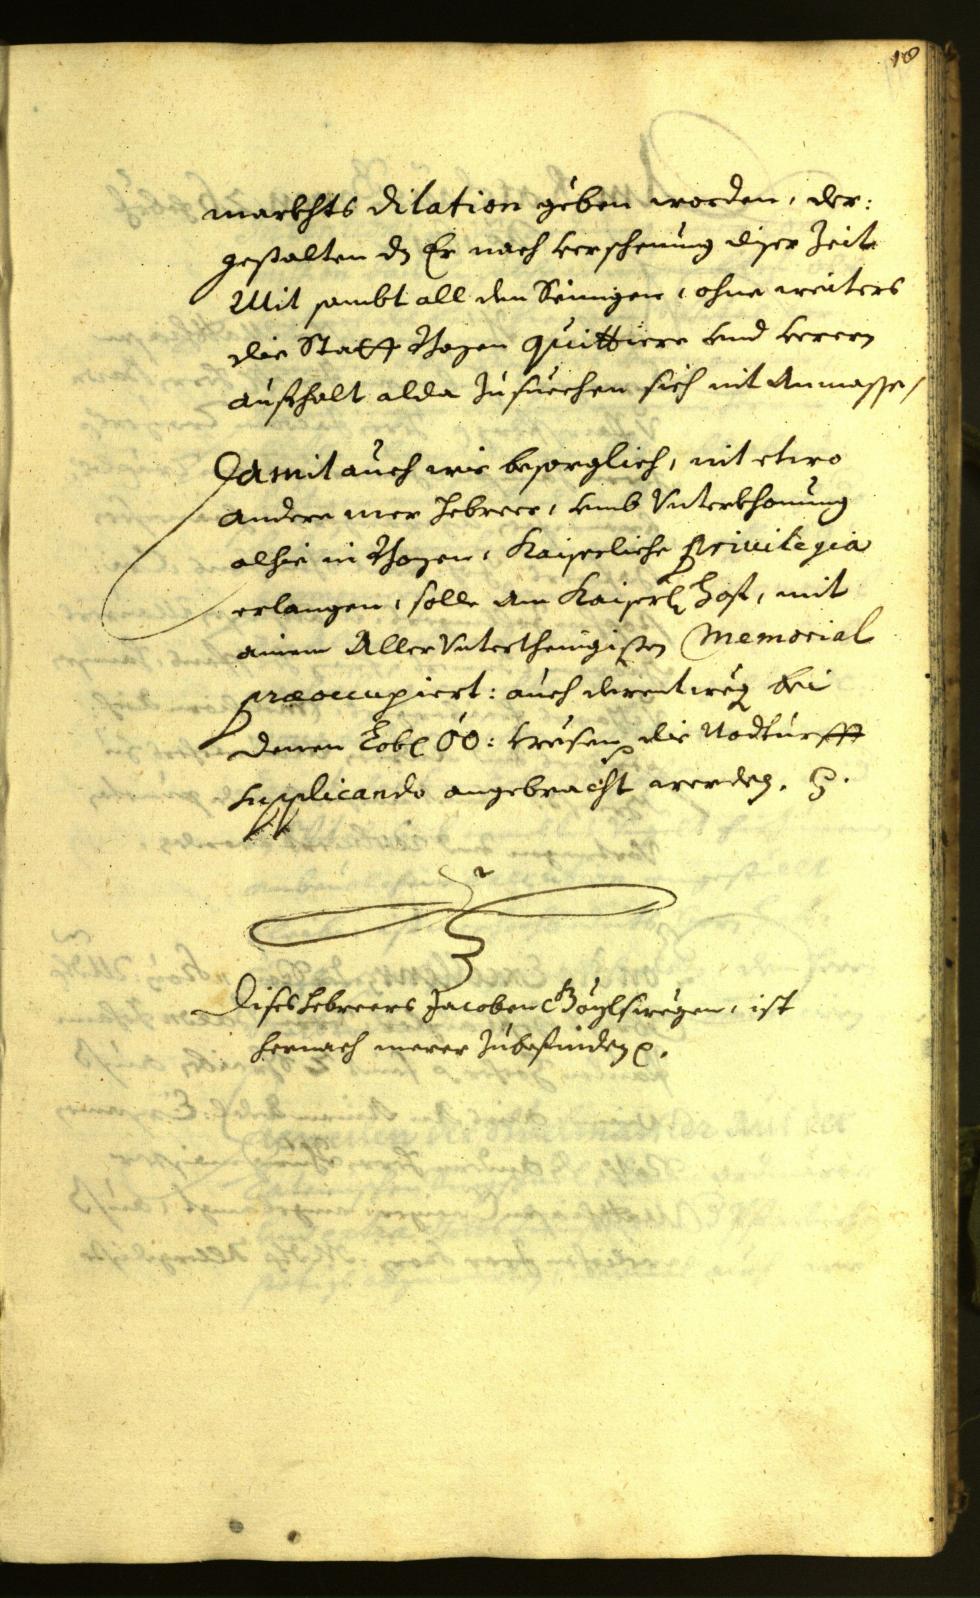 10
markhts dilation geben worden, der:
gestalten dz Er nach verscheinung diser Zeit
Mit sambt all den Seinigen, ohne weiters
die Statt Bozen quittiere und deren
aufhalt alda Zusuechen sich nit Anmasse,
Damit auch wir besorglich, nit etwo
andere mer Hebreer, umb Unterkhomung
alhie in Bozen, Kaiserliche Privilegia
erlangen, solle am Kaiserl Hof, mit
ainem Aller Unterthenigisten Memorial
præoccupiert: auch derentweg bei
denen Lobl OÖ: wesen die Nodturfft
supplicando angebracht werden.
Dises Hebreers Jacoben wegen, ist
hernach merer Zubefinden